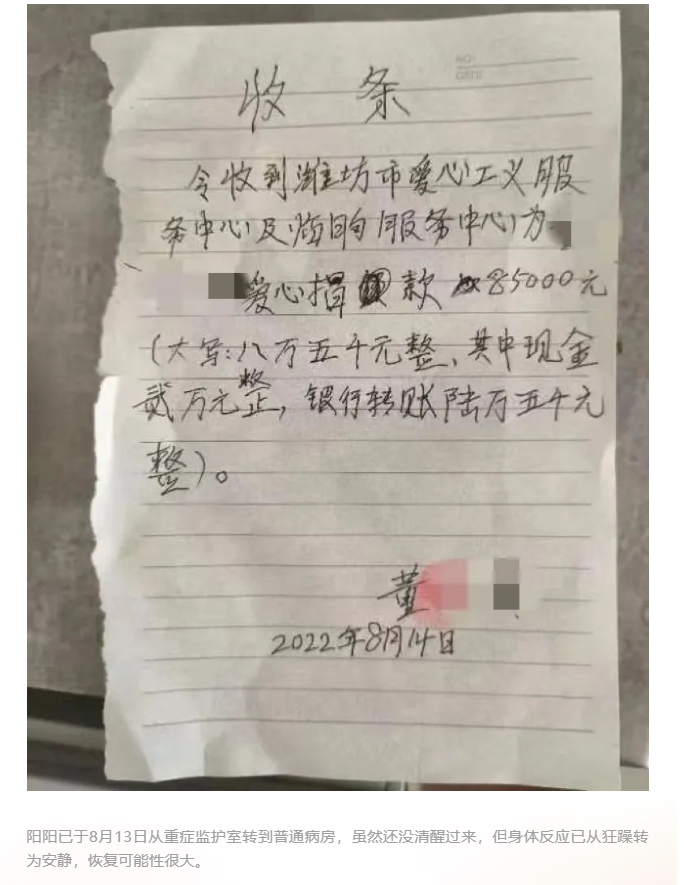 NO
DATE
收 条
今收到潍坊市爱心工义服
务中心及临朐服务中心为
爱心捐款85000元
(大写:八万五千元整,其中现金
贰万元整,银行转账陆万五千元
整)。
董
2022年8月14日
阳阳已于8月13日从重症监护室转到普通病房，虽然还没清醒过来，但身体反应已从狂躁转
为安静，恢复可能性很大。